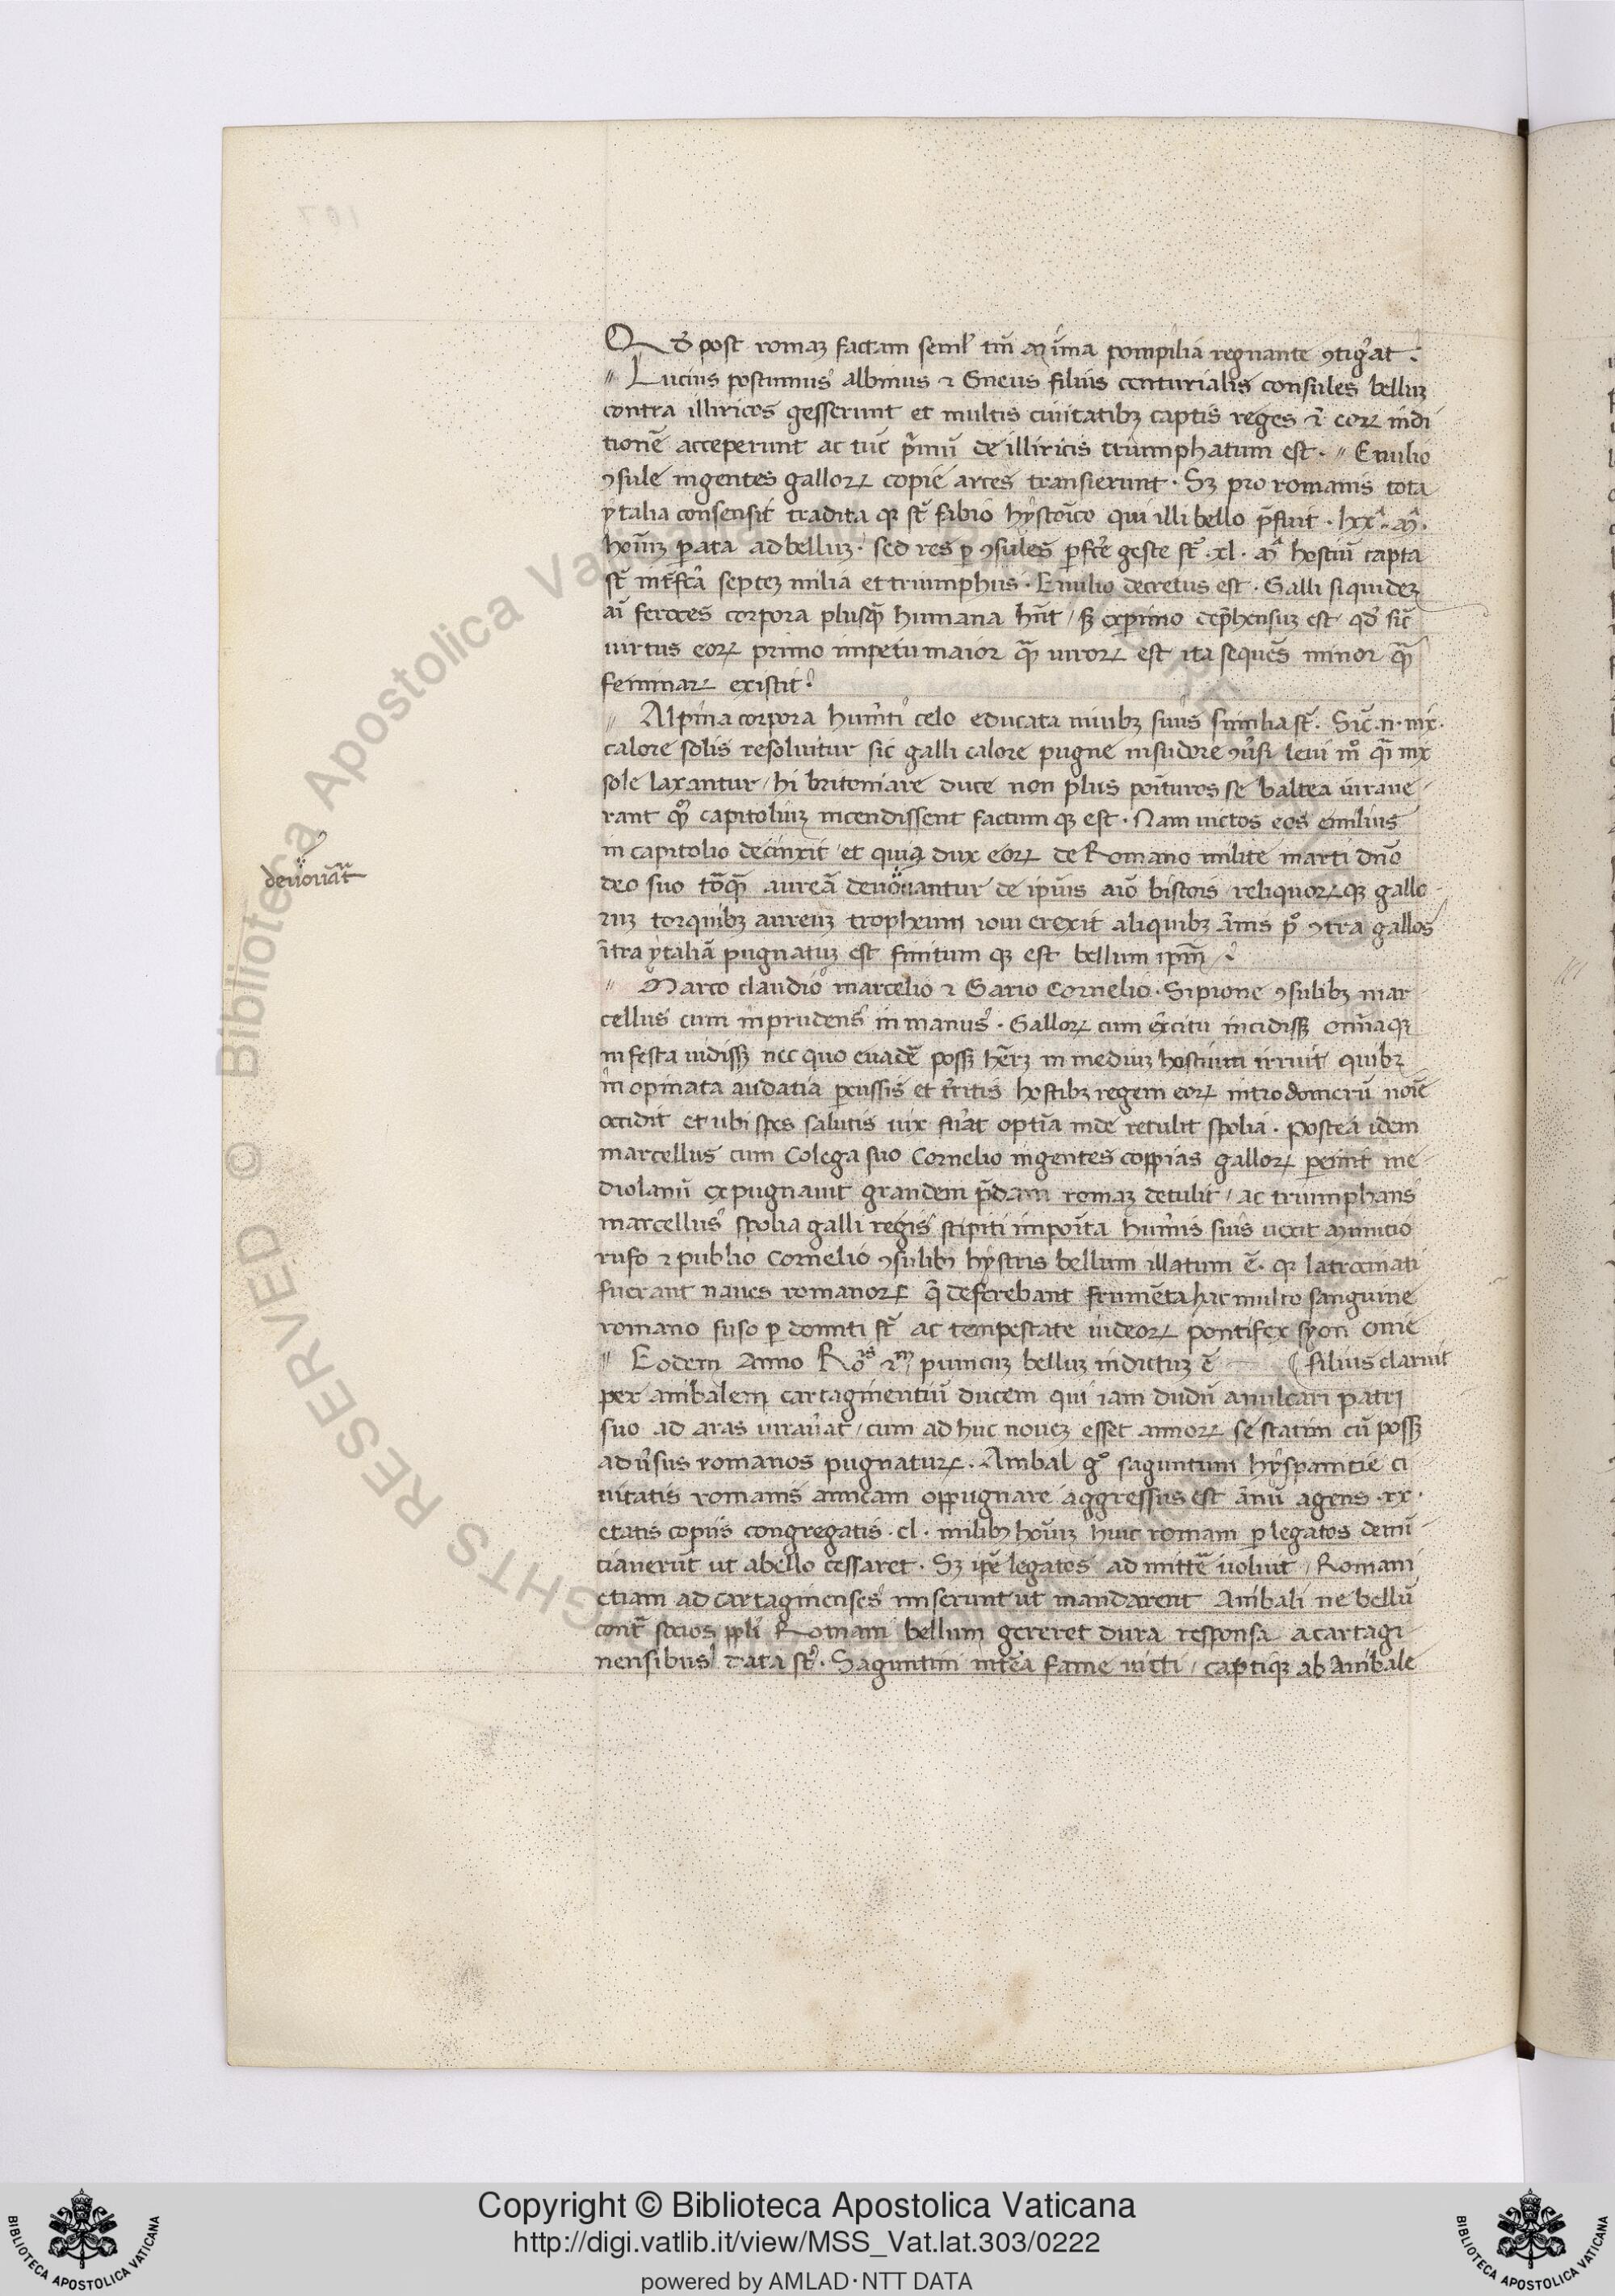 Qd̄ post romaꝫ factam semł tm̄ Numa pompilia regnante ꝯtig̃at.
〃 Lucius postumius albinus ⁊ Gneus filius centurialis consules belluꝫ
contra illiricos gesserunt et multis ciuitatibꝫ captis reges ⁊ eoꝝ indi
tionē acceperunt ac tūc p̄mū de illiricis triumphatum est. 〃 Emilio
ꝯsule ingentes galloꝝ copie arces transierunt. Sꝫ pro romanis tota
ytalia consensit tradita qꝫ st̄ fabio hystoīco qui illi bello p̄fuit. lxx. M̄.
hoīuꝫ ꝑata ad belluꝫ. sed res ꝑ ꝯsules ꝑfcē geste st̄. xl. M̄ hostiū capta
st̄ int̄fcā septeꝫ milia et triumphus. Emilio decretus est. Galli siquideꝫ
aī feroces corpora plusq̄ humana hn̄t / sꝫ exꝑimo dep̄hensuꝫ est qd̄ sic̄
uirtus eoꝝ primo impetu maior q̄ uiroꝝ est ita sequēs minor q̄
feminaꝝ existit.
〃 Alpina corpora hum̄ti celo educata niuibꝫ suis similia st̄. Sic̄.n.nix.
calore solis resoluitur sic galli calore pugne insudore ꝯūsi leui mº q̄i nix
sole laxantur / hi britomare duce non plus poīturos se baltea iuraue
rant qº capitoliuꝫ incendissent factum qꝫ est. Nam uictos eos emilius
in capitolio decinxit / et quiqꝫ dux eoꝝ de Romano milite marti dn̄o
deo suo tōq̄ aureā deuouantur de ip̄ius aiō bistois reliquoꝝ qꝫ gallo
deuouāt
ruꝫ torquibꝫ aureuꝫ tropheum ioui erexit aliquibꝫ ānis pº ꝯtra gallos
ītra ytaliā pugnatuꝫ est finitum qꝫ est bellum ip̄m /.
〃 Marco claudio marcelio ⁊ Gario Cornelio. Sipione ꝯsulibꝫ mar
cellus cum inprudens in manus. Galloꝝ cum ex̄citu incidissꝫ omniaqꝫ
infesta uidissꝫ nec quo euadē possꝫ hēꝫ in mediuꝫ hostium irruit quibꝫ
in opinata audatia ꝑcussis et t̄ritis hostibꝫ regem eoꝝ intriodomerū noīe
occidit et ubi spes salutis uix fūat optīa inde retulit spolia. postea idem
marcellus cum Colega suo Cornelio ingentes coppias galloꝝ ꝑemit me
diolanū expugnauit grandem p̄dam romaꝫ detulit / ac triumphans
marcellus spolia galli regis stipiti impoīta hum̄is suis uexit Minitio
rufo ⁊ publio Cornelio ꝯsulibꝫ hystris bellum illatum ē. qꝫ latrocinati
fuerant naues romanoꝝ q̄ deferebant frumēta hic multo sanguine
romano fuso ꝑ domiti st̄ ac tempestate iudeoꝝ pontifex syon onie
〃 Eodem Anno Roīs ⁊m̄ punicuꝫ belluꝫ indictuꝫ ē (filius claruit
per anibalem cartaginentiū ducem qui iam dudū amilcari patri
suo ad aras iurau̇at / cum ad huc noueꝫ esset annoꝝ se statim cū possꝫ
adūsus romanos pugnatuꝝ. Anibal gº saguntum hyspanitie ci
uitatis romanis amicam oppugnare aggressus est ānū agens .xx.
etatis copiis congregatis. cl. milibꝫ hoīuꝫ huic romam ꝑ legatos denū
tiauerūt ut abello cessaret. Sꝫ ip̄e legatos ad mittē uoluit / Romani
etiam ad cartaginenses miserunt ut mandarent Anibali ne bellū
cont̄ socios ppli Romani bellum gereret dura responsa a cartagi
nensibus data st̄. Saguntini int̄ea fame uicti / captiqꝫ ab Anibale
Copyright © Biblioteca Apostolica Vaticana
http://digi.vatlib.it/view/MSS_Vat.lat.303/0222
powered by AMLAD·NTT DATA
BIBLIOTECA APOSTOLICA VATICANA
BIBLIOTECA APOSTOLICA VATICANA